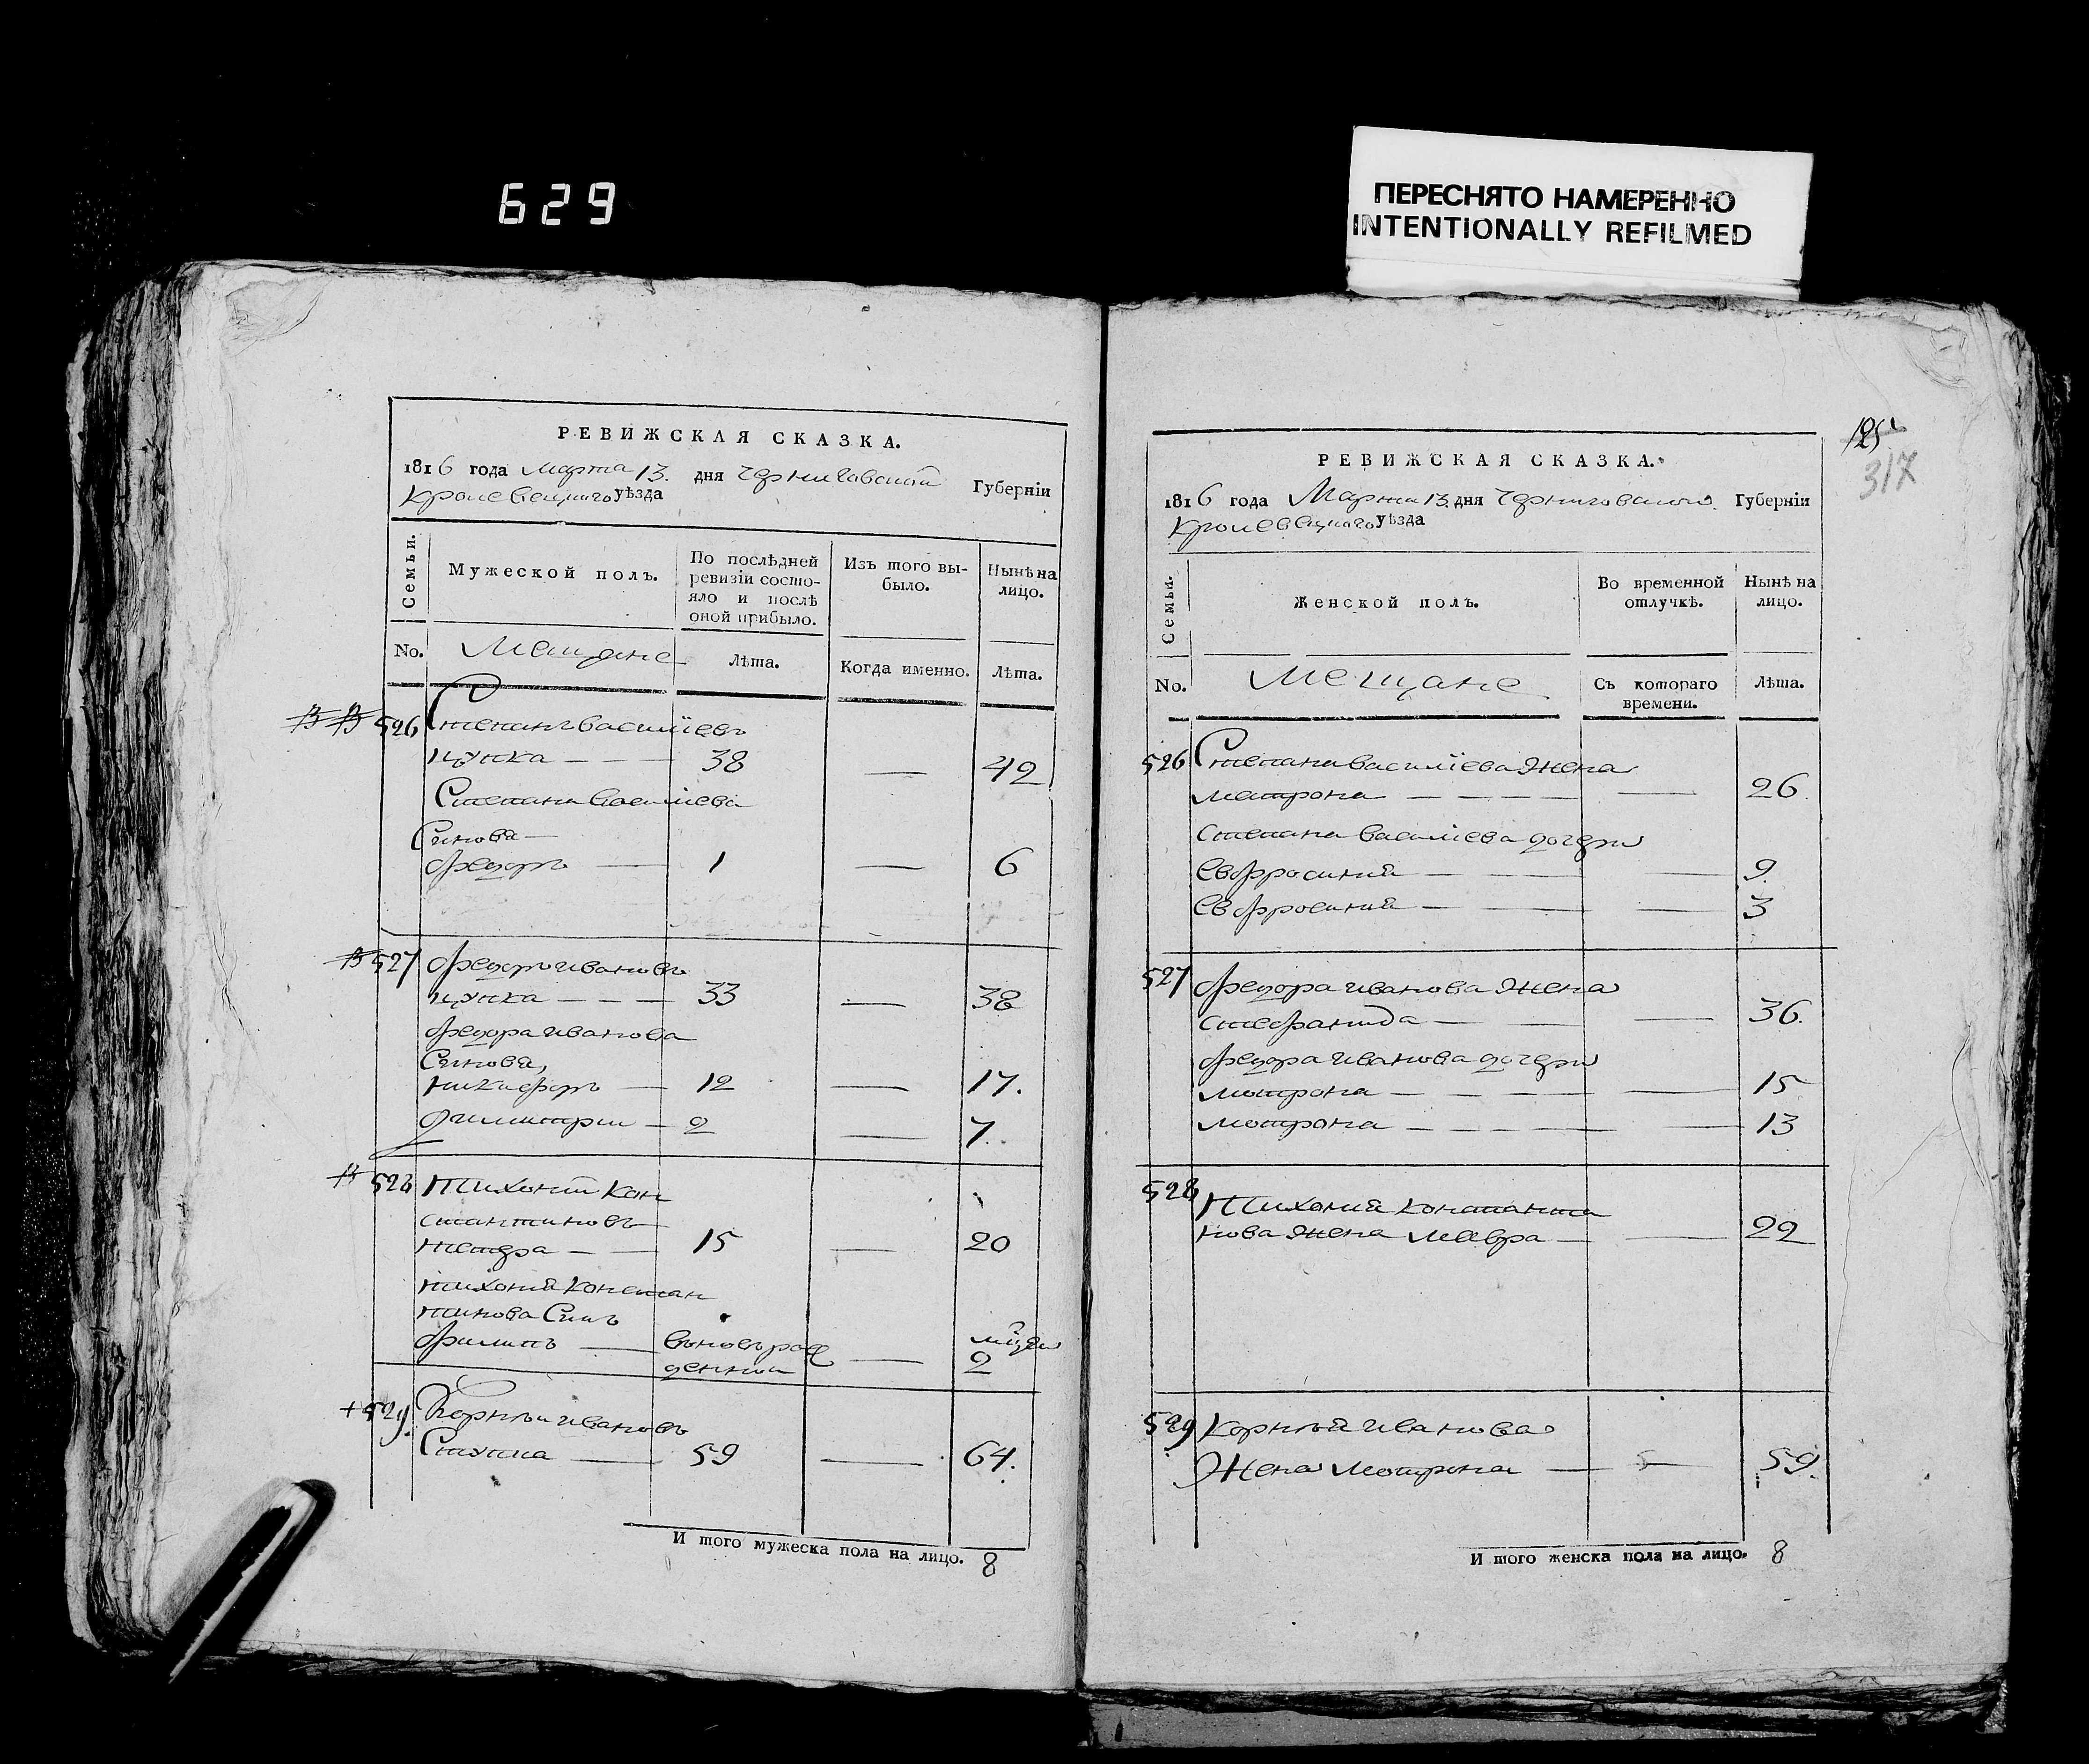 629
ПЕРЕСНЯТО НАМЕРЕННО
INTENTIONALLY REFILMED
РЕВИЖСКАЯ СКАЗКА.
1816 года Марта 13. дня Черниговской Губерніи
Кролевецкаго уѣзда
Семьи.
Мужеской полъ.
По послѣдней
ревизіи состо-
яло и послѣ
оной прибыло.
Изъ того вы-
было.
Нынѣ на
лицо.
No.
Мещане
Лѣта.
Когда именно.
Лѣта.
526 Степанъ Василіевъ
цупка 38 42
Степана Василіева
Синова
Федоръ 1 6
527 Федоръ Ивановъ
цупка 33 38
Федора Иванова
Синова,
Никифоръ 12 17.
Димитрии 2 7.
528 Тихоній Кон
стантиновъ
15 20
Тихонія Констан
тинова Синъ
Филипъ вновь рож
денний 2
529. Корнѣи Ивановъ
59 64.
И того мужеска пола на лицо. 8
125
317
РЕВИЖСКАЯ СКАЗКА.
1816 года Марта 13. дня Черниговской Губерніи
Кролевецкаго уѣзда
Семьи.
Женской полъ.
Во временной
отлучкѣ.
Нынѣ на
лицо.
No.
Мещане
Съ котораго
времени.
Лѣта.
526 Степана Василіева Жена
Матрона 26.
Степана Василіева дочери
Евфросиния 9
Евфросиния 3
527 Федора Иванова Жена
Стефанида 36.
Федора Иванова дочери
Мотрона 15
Мотрона 13
528 Тихония Константи
нова Жена Мавра 22
529 Корнѣя Иванова
Жена Мотрона 59.
И того женска пола на лицо. 8